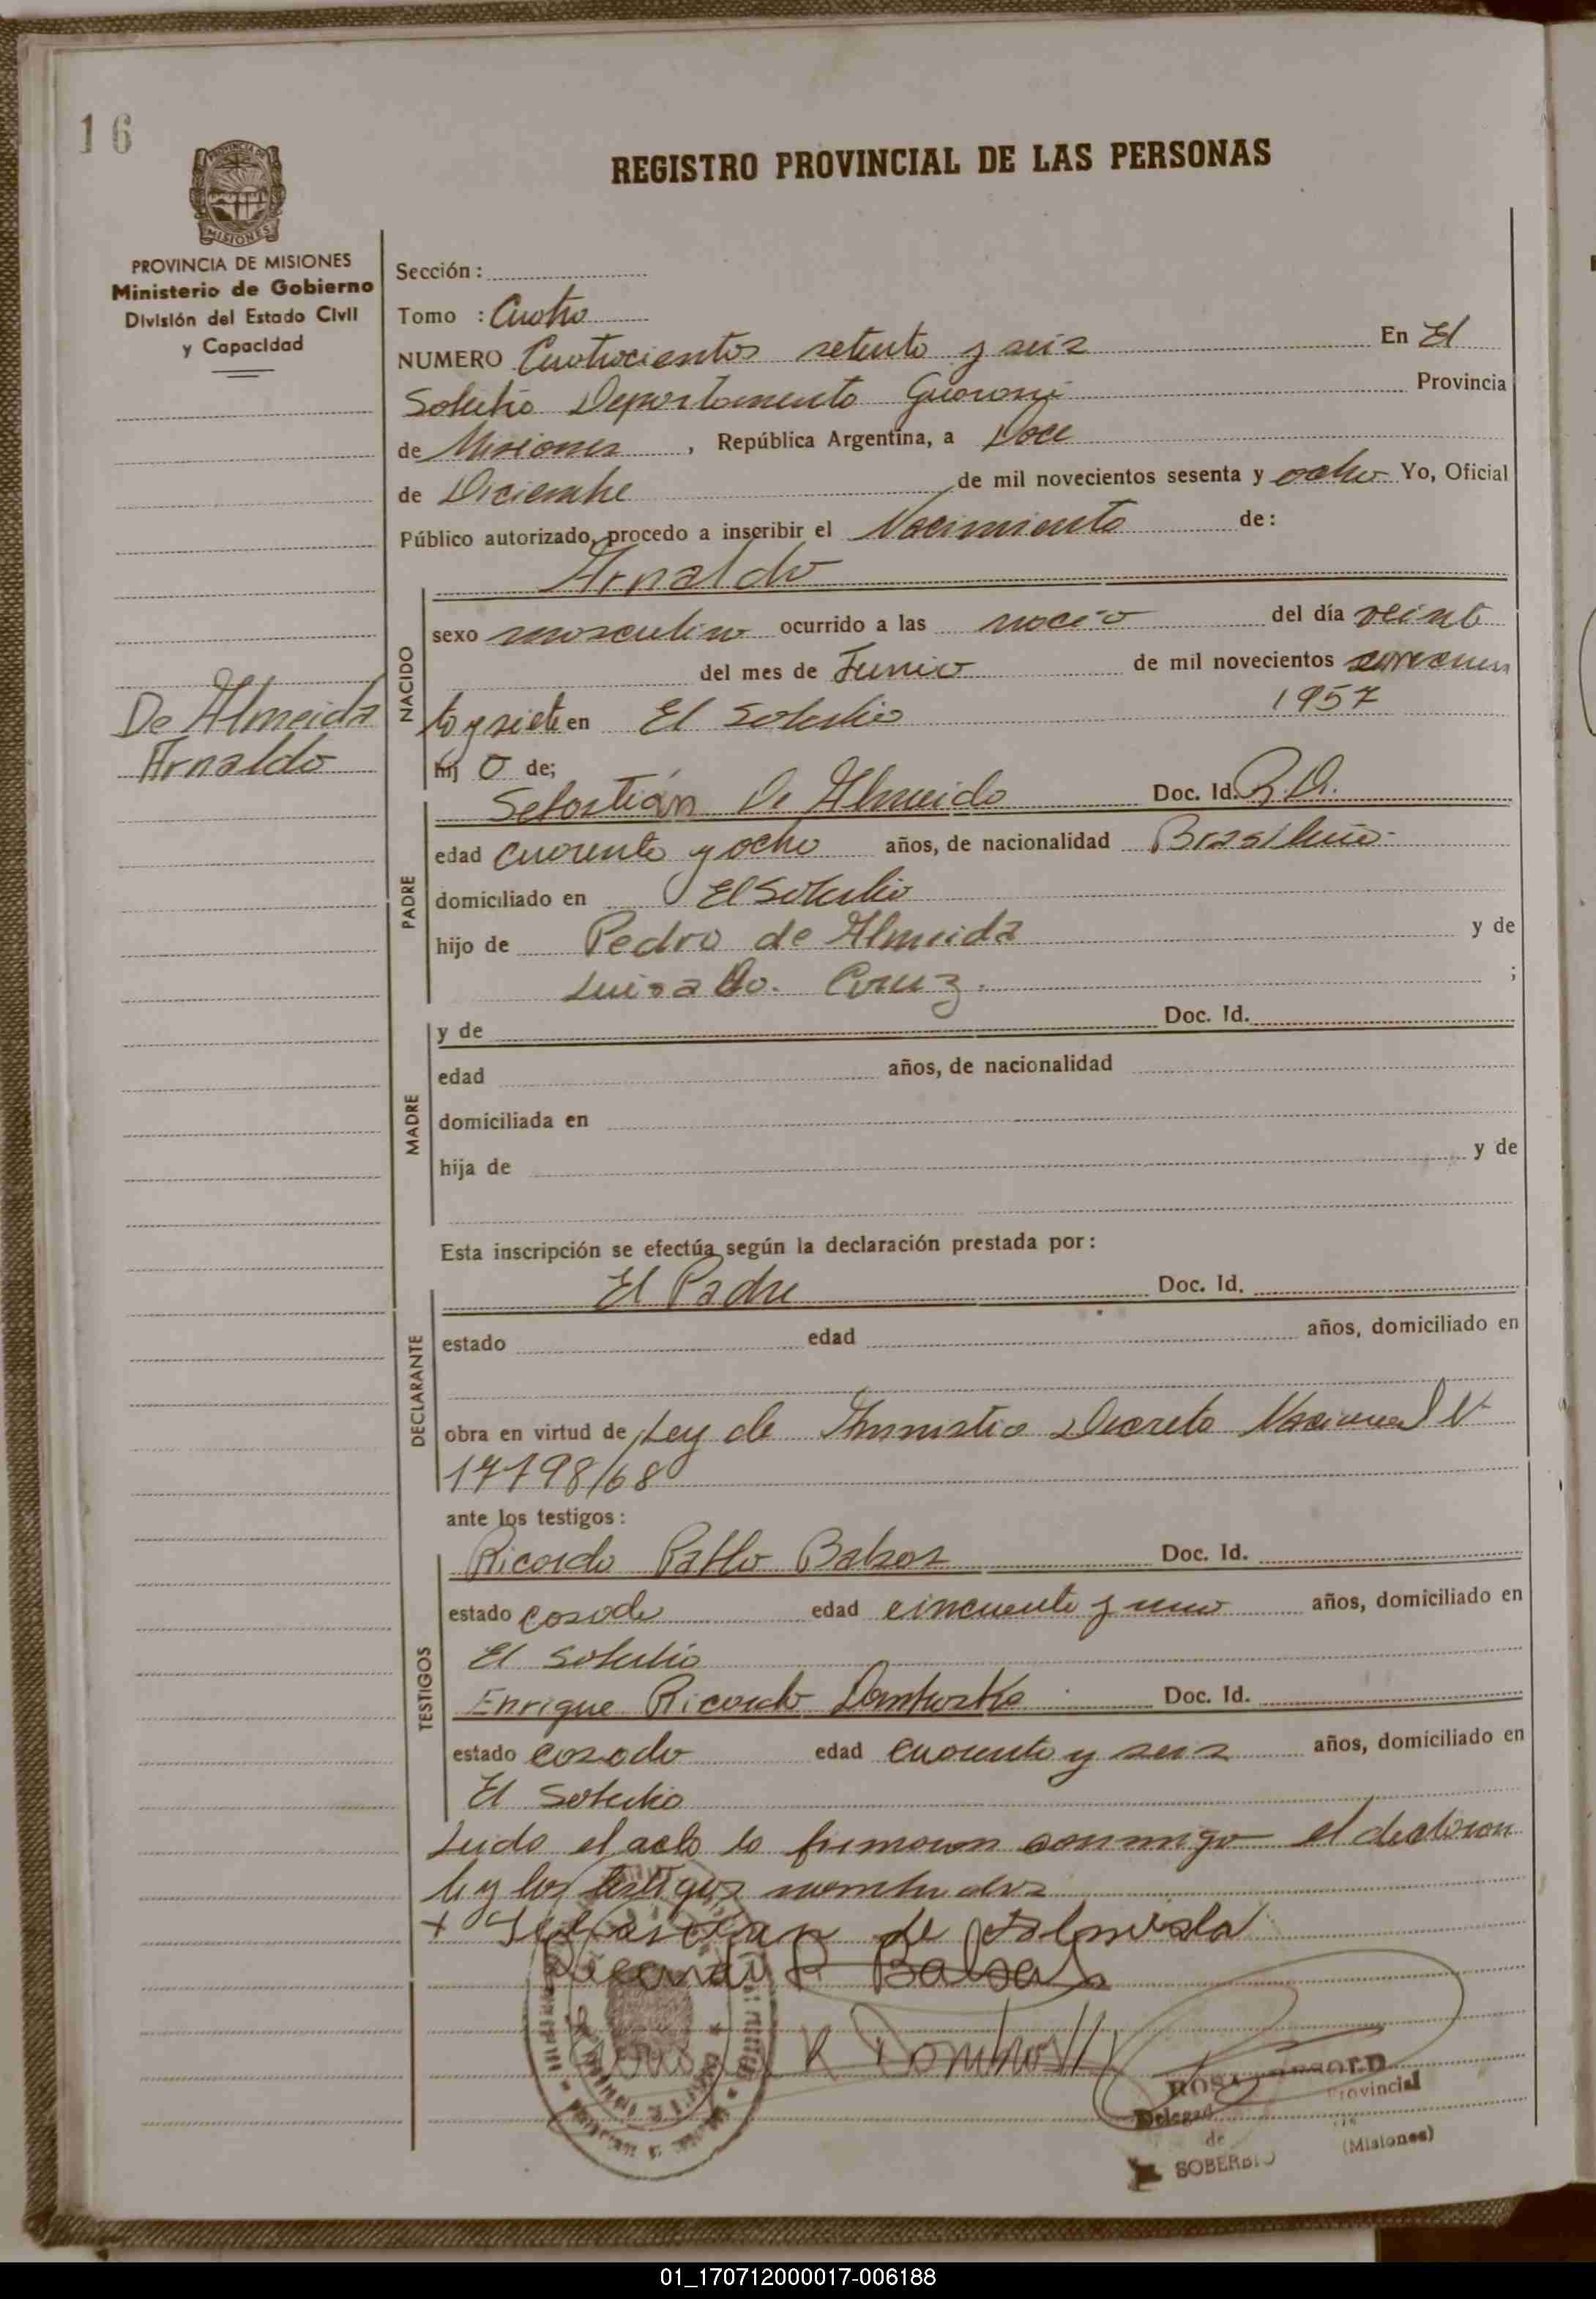 16
PROVINCIA DE
MISIONES
REGISTRO PROVINCIAL DE LAS PERSONAS
PROVINCIA DE MISIONES
Ministerio de Gobierno
División del Estado Civil
y Capacidad
Sección:
Tomo : Cuatro
NUMERO Cuatrocientos setenta y seis En El
Soberbio Departamento Guaraní Provincia
de Misiones, República Argentina, a Doce
de Diciembre de mil novecientos sesenta y ocho Yo, Oficial
Público autorizado, procedo a inscribir el Nacimiento de:
Arnaldo
NACIDO
sexo masculino ocurrido a las del día veinte
del mes de Junio de mil novecientos cincuen
ta y siete en El Soberbio 1957
hij o de;
De Almeida
Arnaldo
PADRE
Sebastián De Almeida Doc. Id.
edad cuarenta y ocho años, de nacionalidad Brasileño
domiciliado en El Soberbio
hijo de Pedro de Almeida y de
Luisa Cruz. ;
MADRE
y de Doc. Id.
edad años, de nacionalidad
domiciliada en
hija de y de
Esta inscripción se efectúa según la declaración prestada por:
DECLARANTE
El Padre Doc. Id.
estado edad años, domiciliado en
obra en virtud de Ley de Amnistia Decreto Nacional N
17798/68
ante los testigos:
TESTIGOS
Ricardo Pablo Doc. Id.
estado casado edad cincuenta y uno años, domiciliado en
El Soberbio
Enrique Ricardo Doc. Id.
estado casado edad cuarenta y seis años, domiciliado en
El Soberbio
Leido el acta la firmaron conmigo el declaran
te y los testigos nombrados
+ Sebastian de Almeida
Ricardo P.
R
ROSA
Delegad Provincial
de
SOBERBIO (Misiones)
01_170712000017-006188